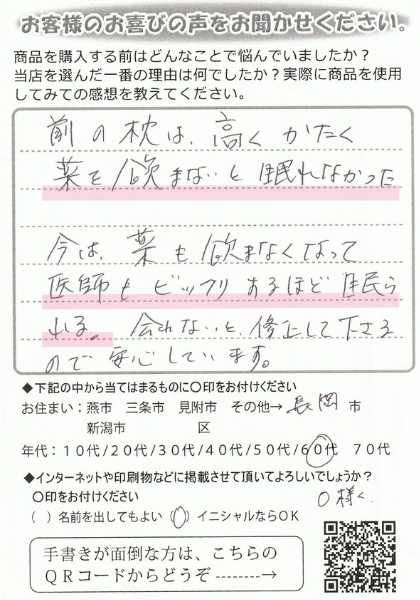 お客様のお喜びの声をお聞かせください。
商品を購入する前はどんなことで悩んでいましたか?
当店を選んだ一番の理由は何でしたか?実際に商品を使用
してみての感想を教えてください。
前の枕は、高くかたく
薬を飲まないと眠れなかった
今は、薬も飲まなくなって
医師もビックリするほど眠ら
れる。合わないと、修正して下さる
ので安心しています。
◆下記の中から当てはまるものに○印をお付けください
お住まい:燕市 三条市 見附市 その他→長岡市
新潟市 区
年代:10代/20代/30代/40代/50代/60代 70代
◆インターネットや印刷物などに掲載させて頂いてよろしいでしょうか?
○印をお付けください
O様
( )名前を出してもよい (○)イニシャルならOK
手書きが面倒な方は、こちらの
QRコードからどうぞ--------→